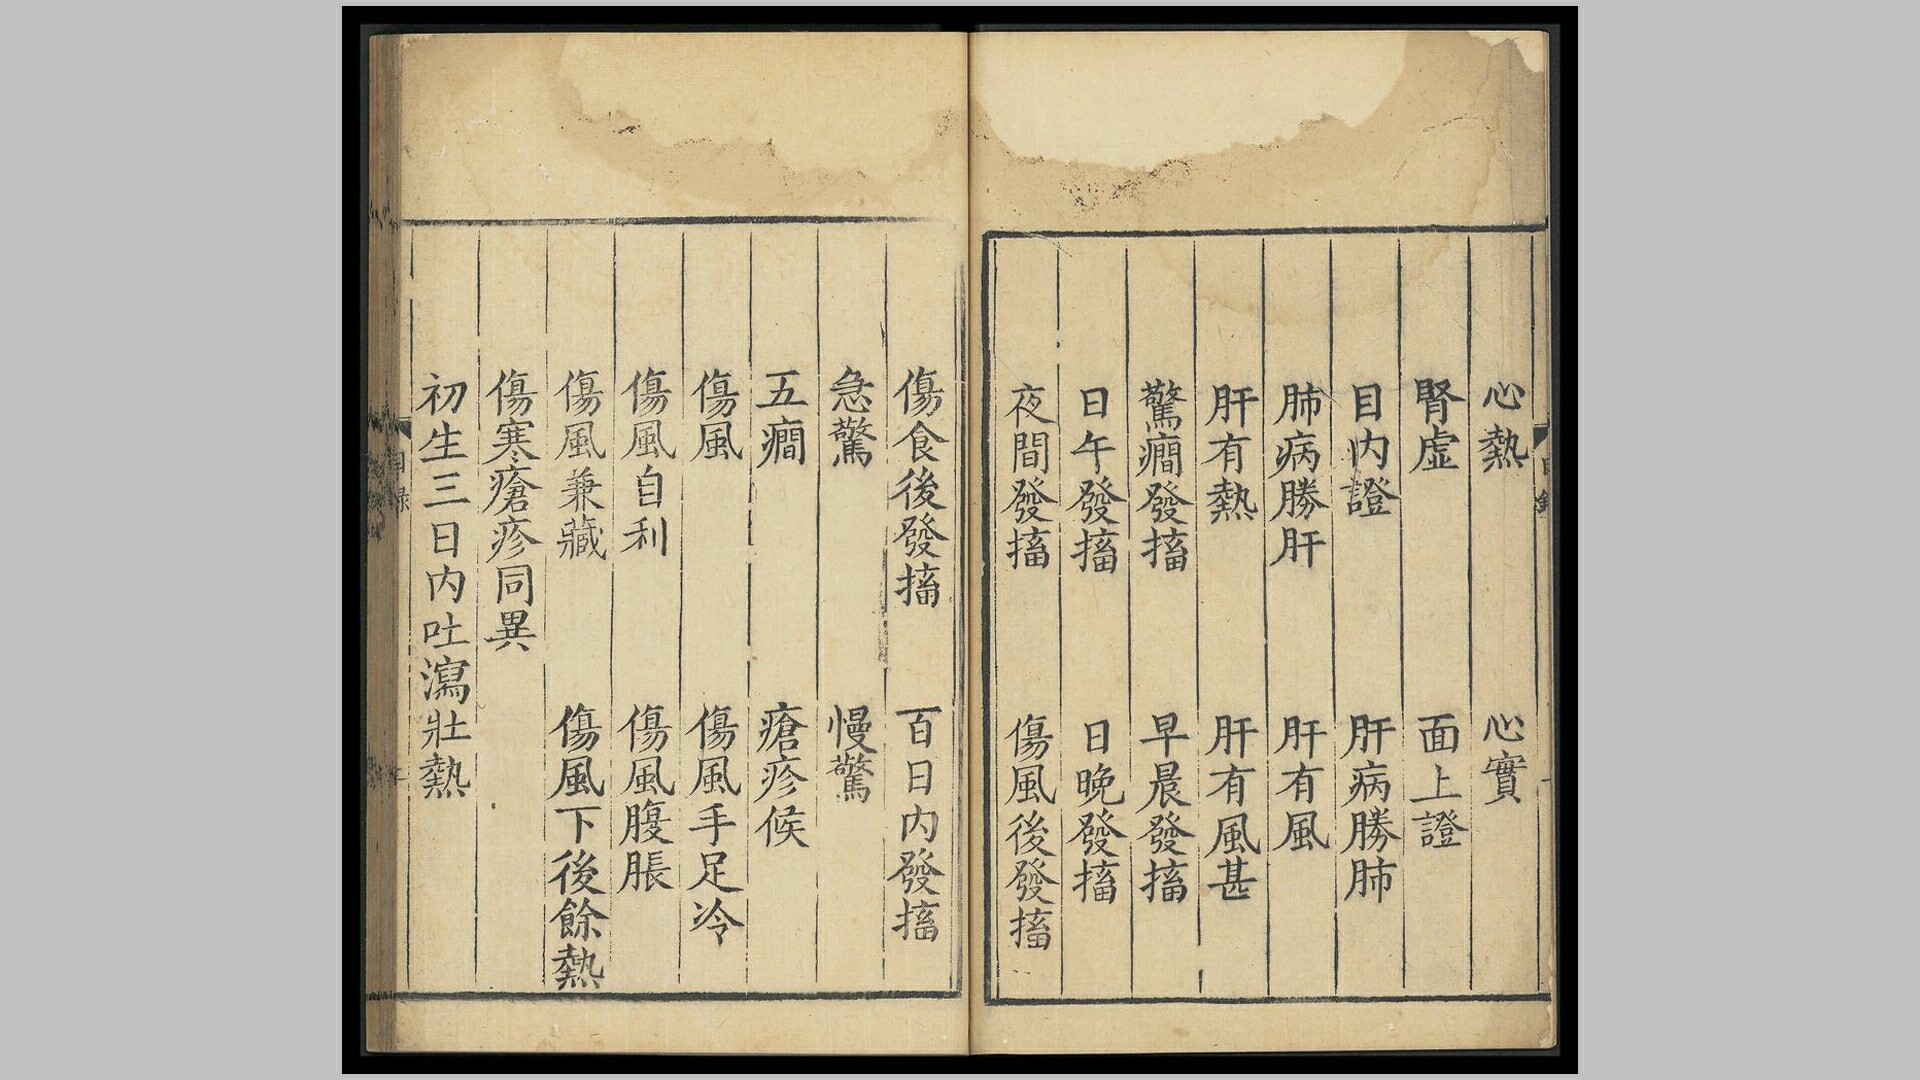 心熱 心實
腎虛 面上證
目内證 肝病勝肺
肺病勝肝 肝有風
肝有熱 肝有風甚
驚癇發搐 早晨發搐
日午發搐 日晚發搐
夜間發搐 傷風後發搐
傷食後發搐 百日内發搐
急驚 慢驚
五癇 瘡疹候
傷風 傷風手足冷
傷風自利 傷風腹脹
傷風兼藏 傷風下後餘熱
傷寒瘡疹同異
初生三日内吐瀉壯熱
目録